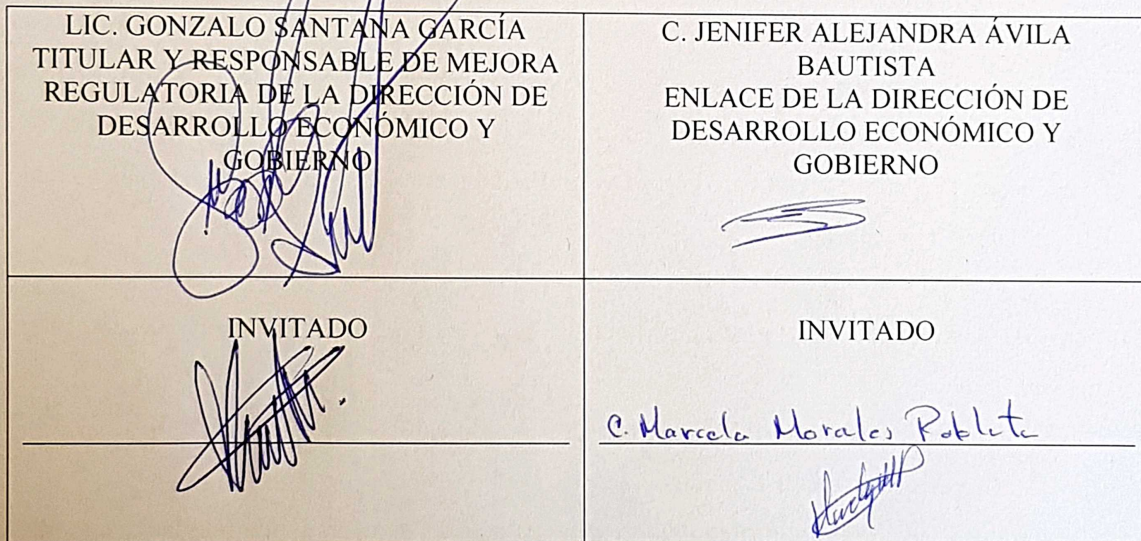 LIC. GONZALO SANTANA GARCÍA
TITULAR Y RESPONSABLE DE MEJORA
REGULATORIA DE LA DIRECCIÓN DE
DESARROLLO ECONÓMICO Y
GOBIERNO
C. JENIFER ALEJANDRA ÁVILA
BAUTISTA
ENLACE DE LA DIRECCIÓN DE
DESARROLLO ECONÓMICO Y
GOBIERNO
INVITADO
INVITADO
C. Marcela Morales